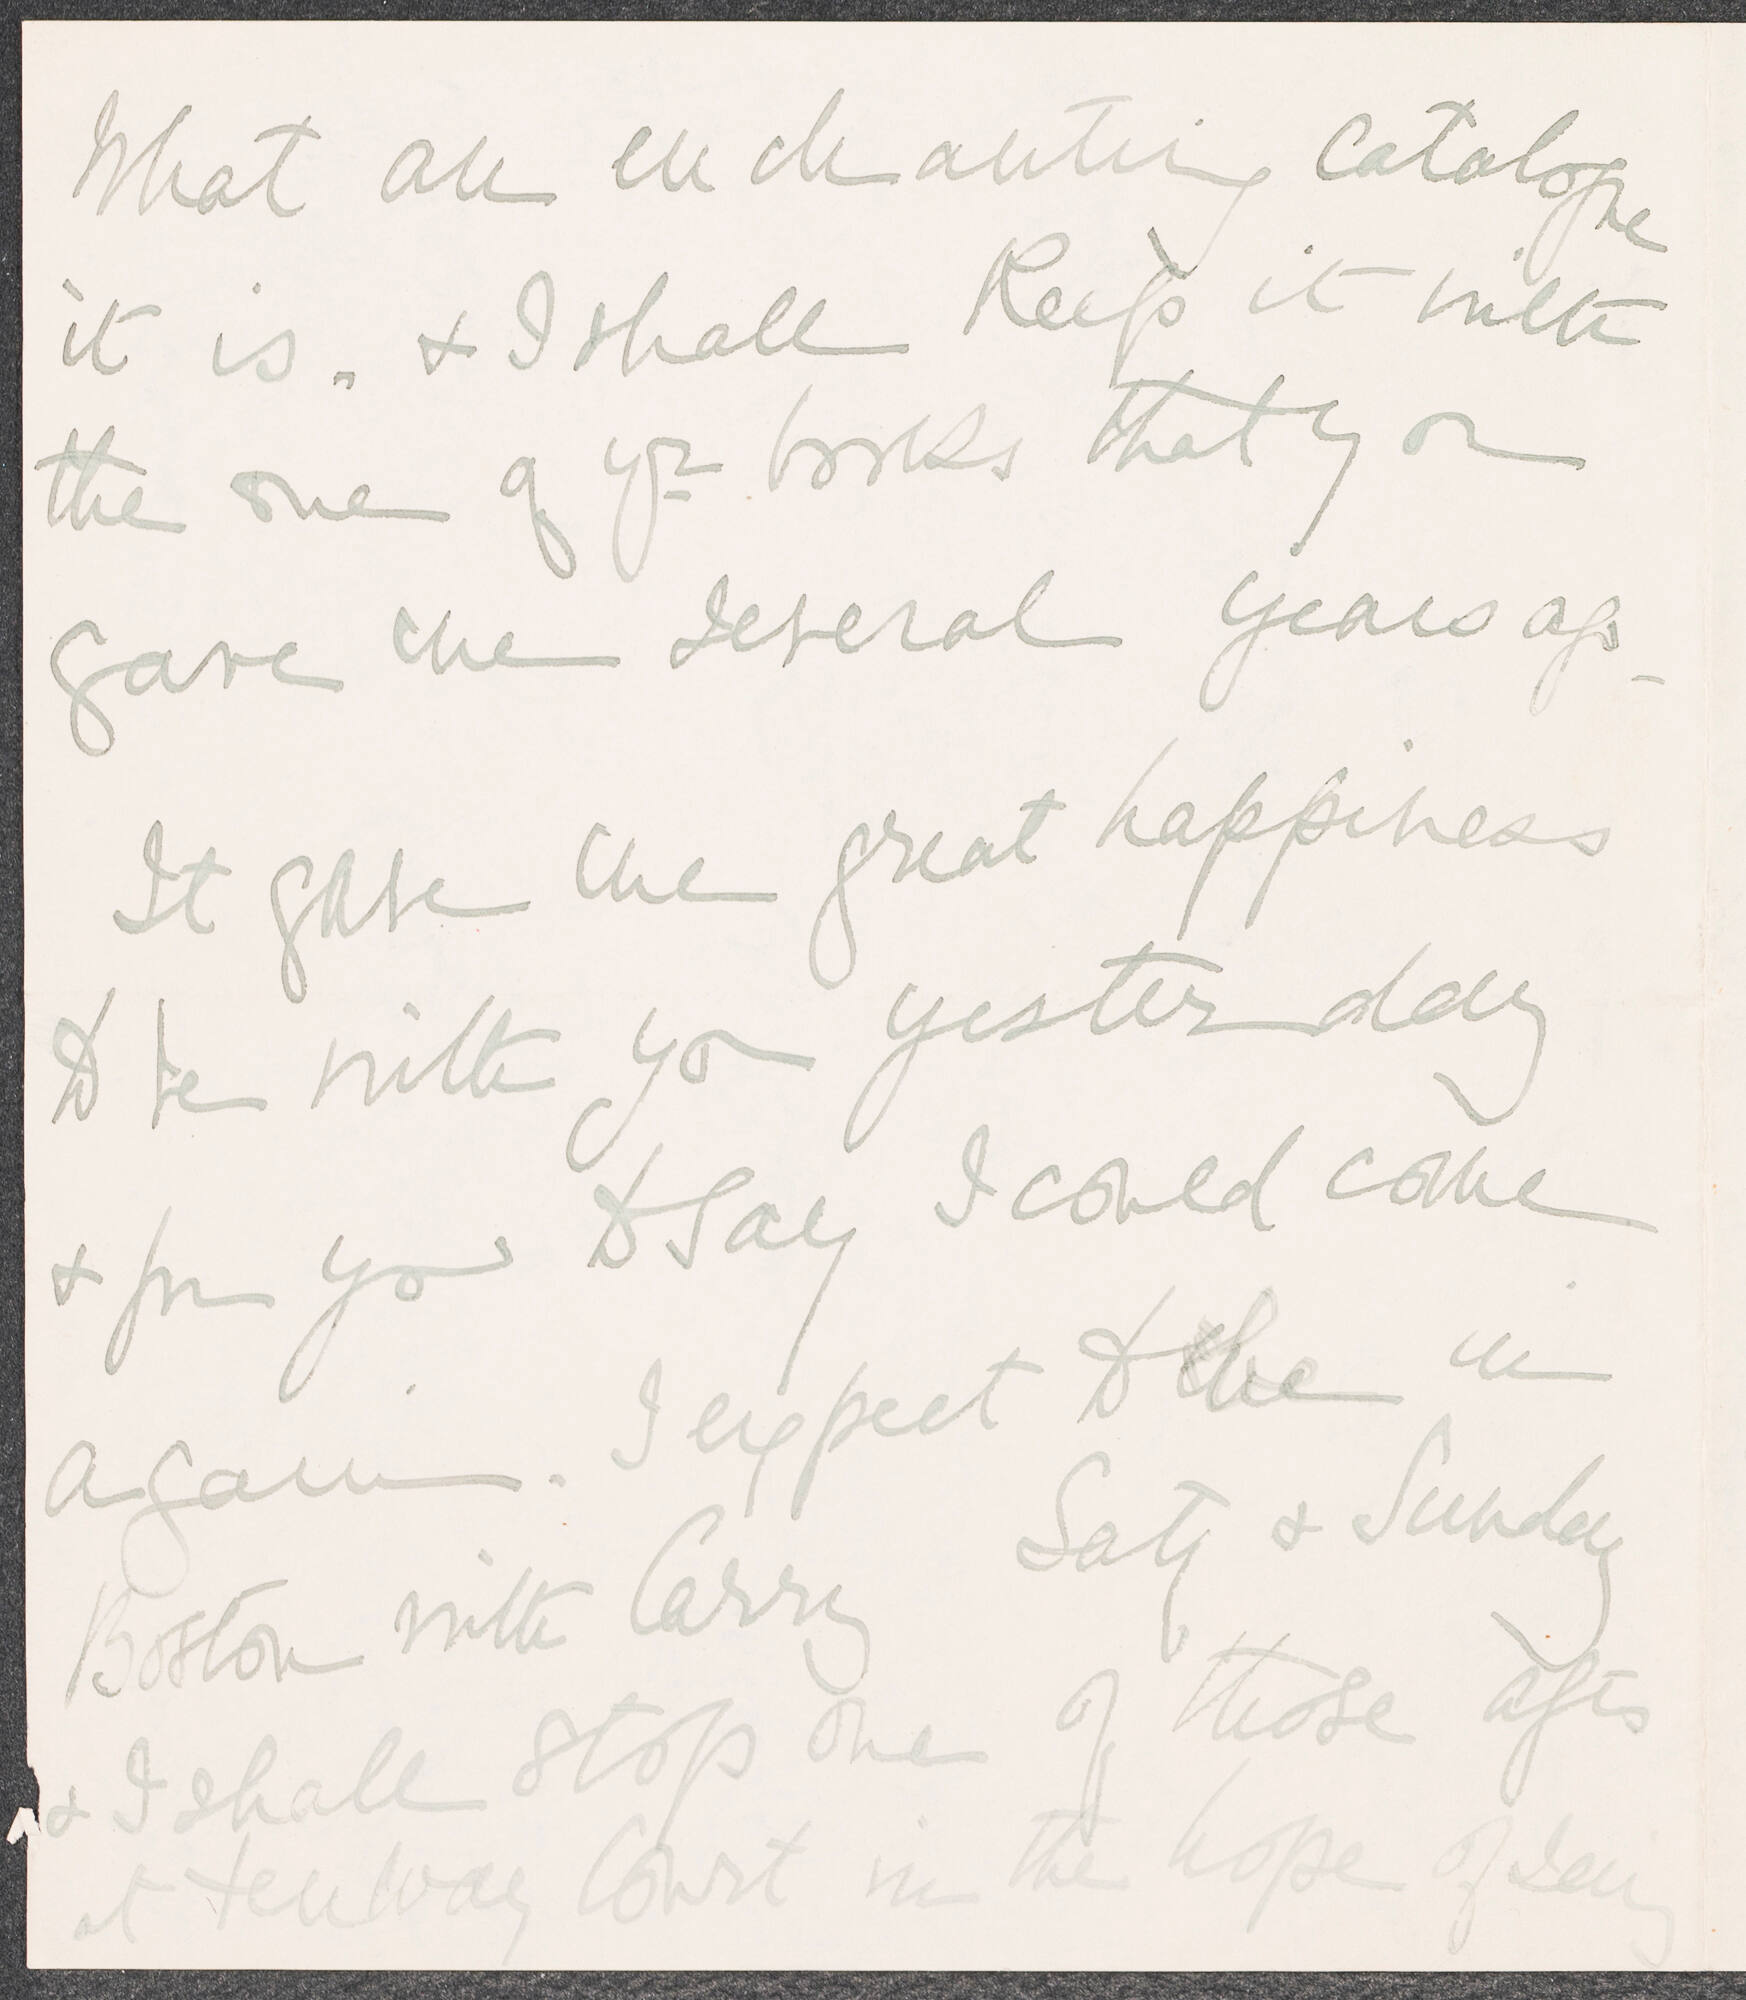 What an enchanting catalogue
it is, & I shall keep it with
the one of yr books that you
gave me several years ago_
It gave me great happiness
to be with you yesterday
& for you to say I could come
again. I expect to be in
Boston with Carry Saty & Sunday
& I shall stop one of those afts
at Fenway Court in the hope of seeing